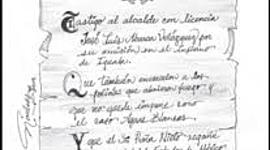 Castigo al alcalde con licencia
José Luis Abarca Velázquez por
su omisión en el infierno
de Iguala.
Que también encierren a los
policías que abrieron fuego y
que no quede impune como
el caso Aguas Blancas
Y que el Sr Peña Nieto regañe